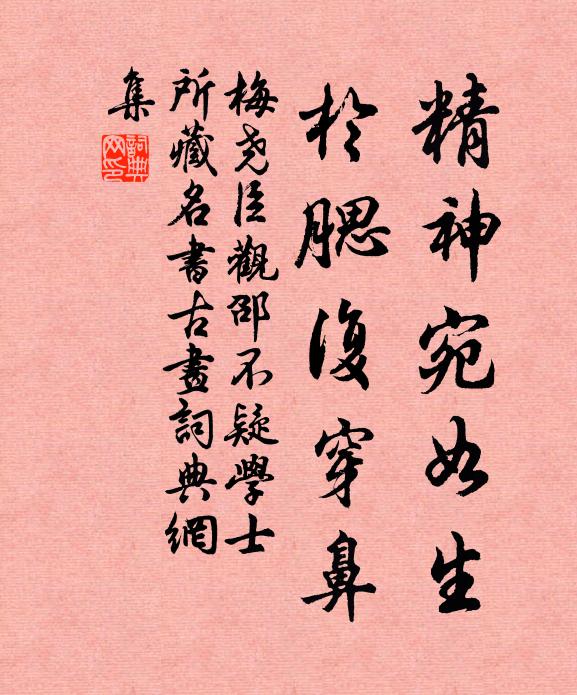 精神宛如生
於腮復穿鼻
梅堯臣觀邵不疑學士
所藏名書古畫詞典網
集
詞典
网印